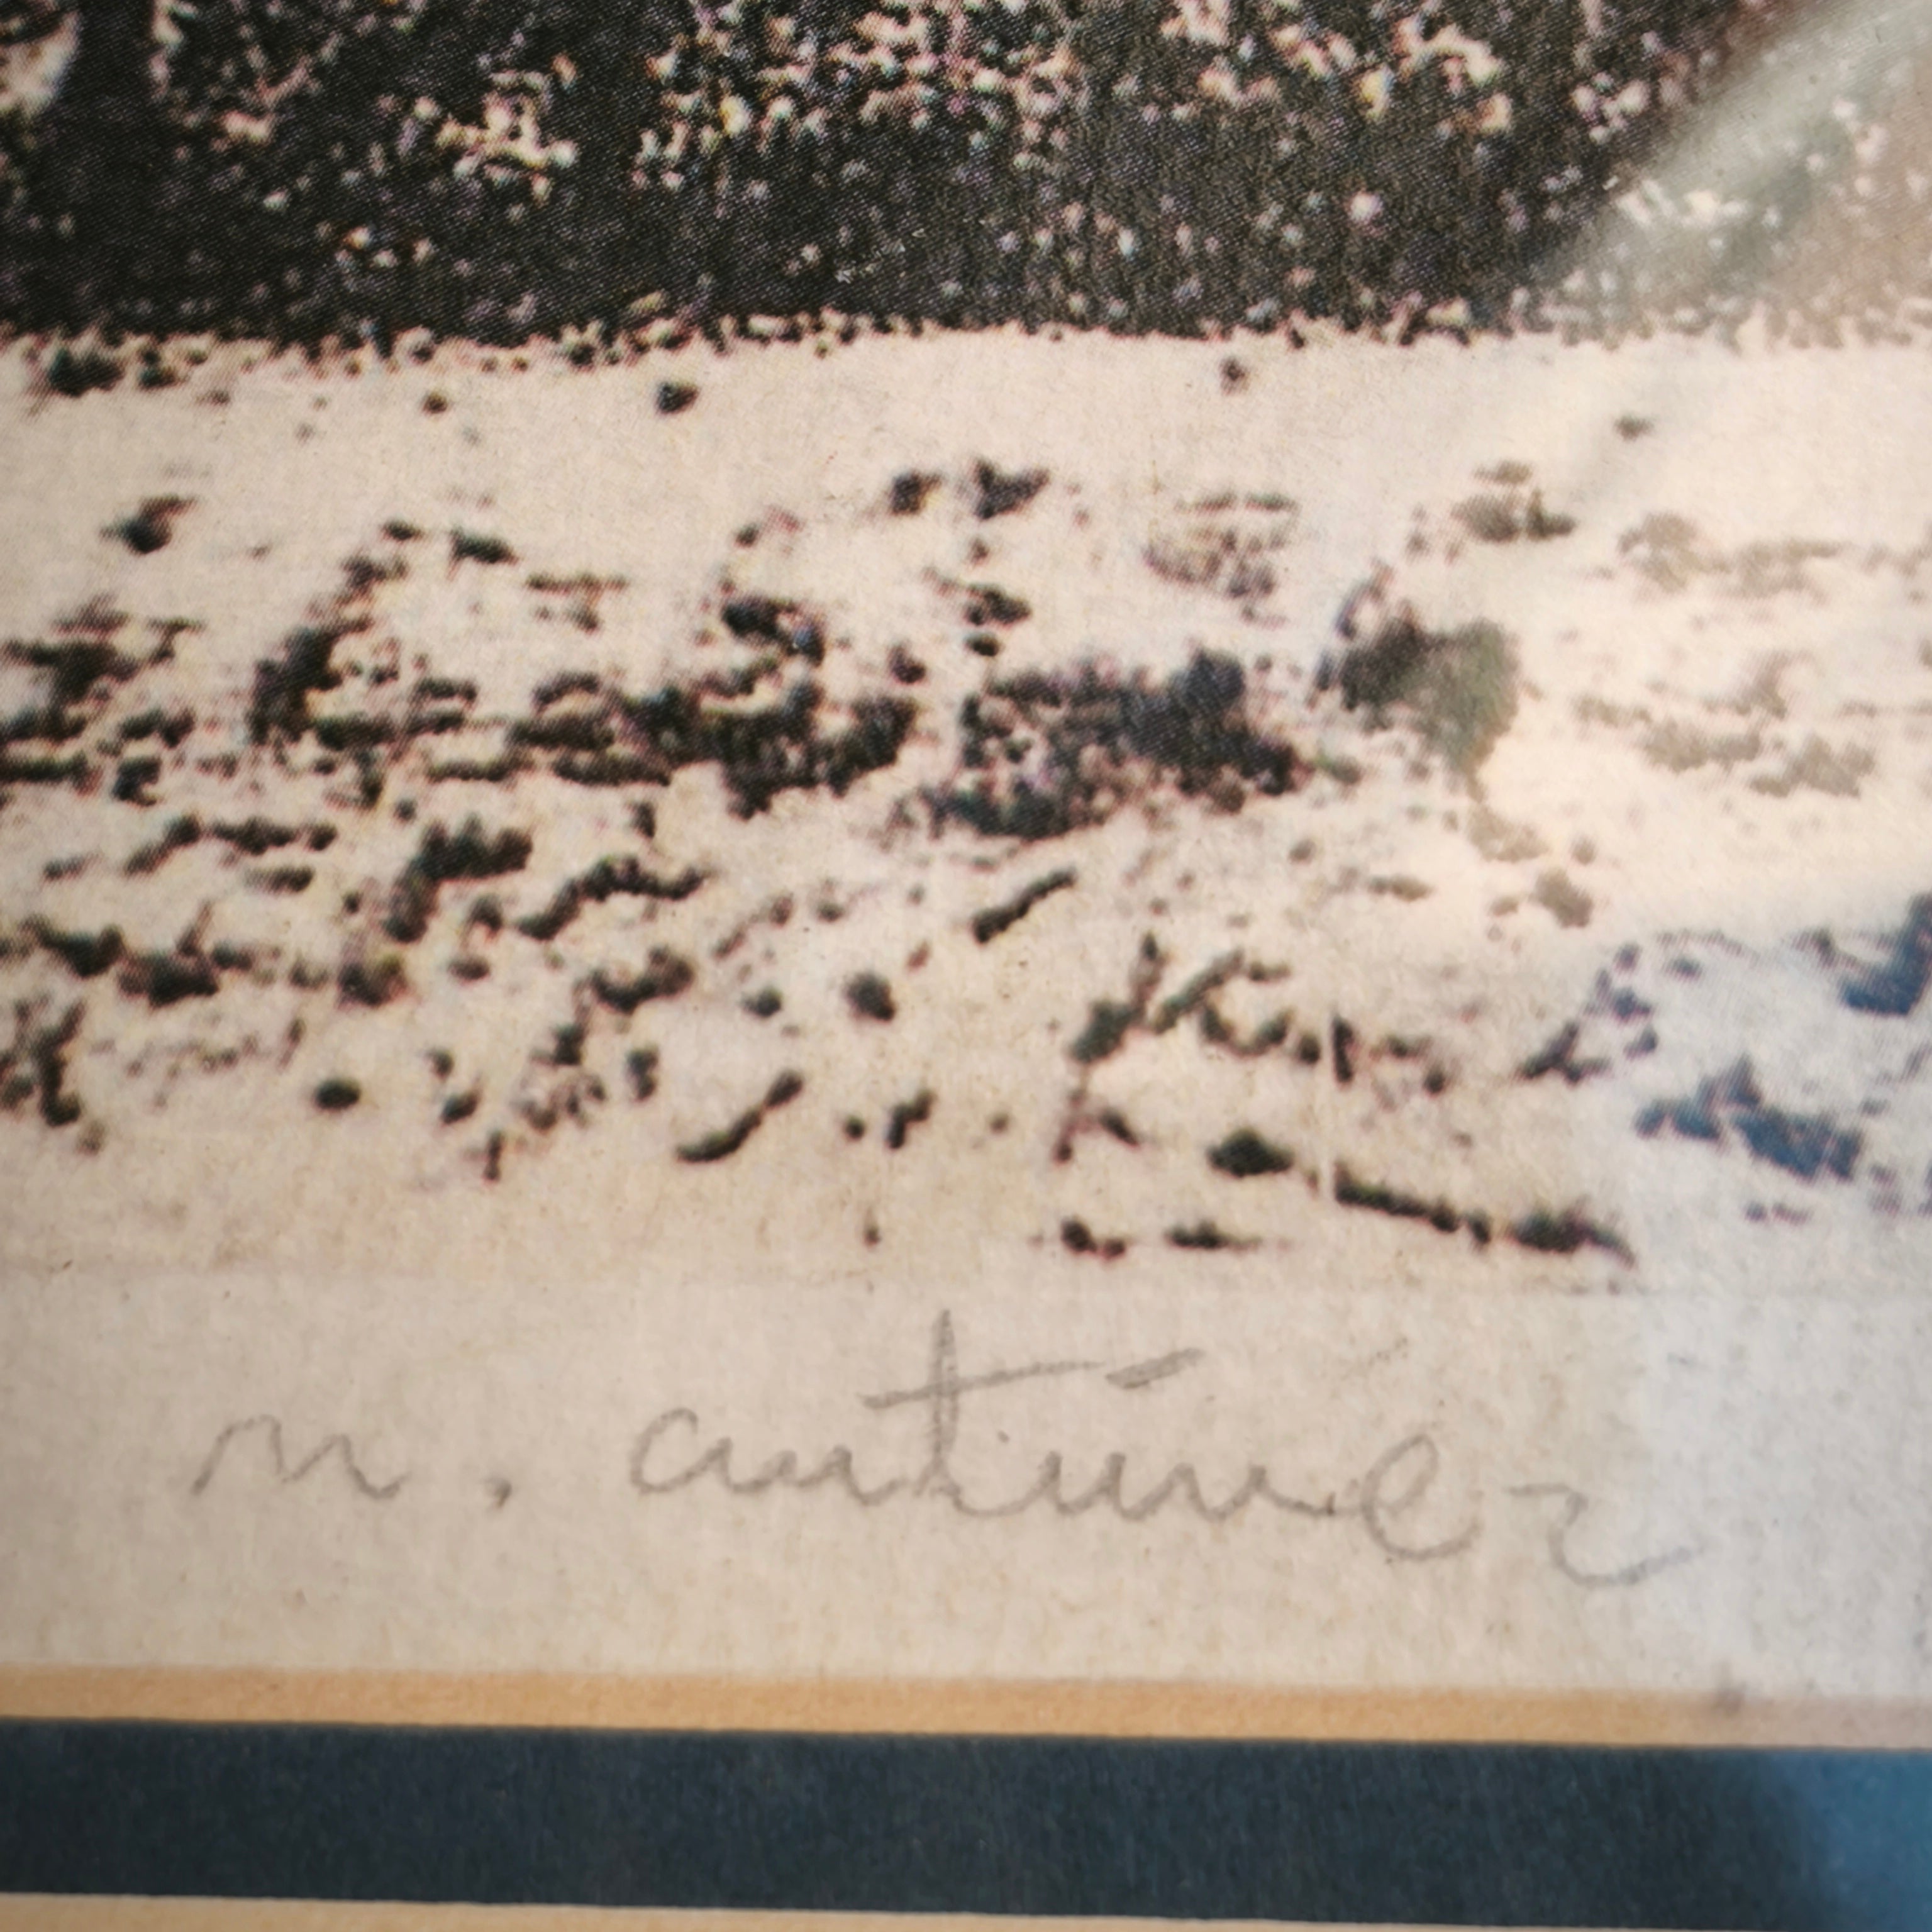 n. antúnez